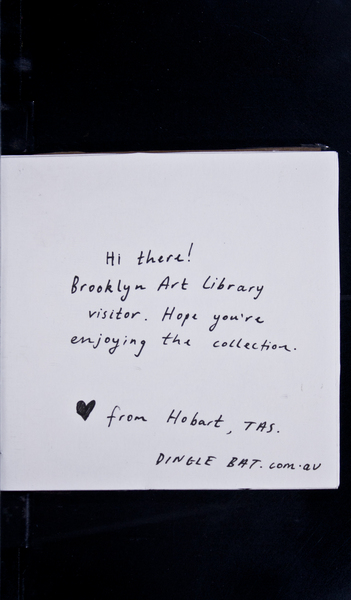 Hi there!
Brooklyn Art Library
visitor. Hope you're
enjoying the collection.
♥ from Hobart, TAS.
DINGLE BAT.com.au